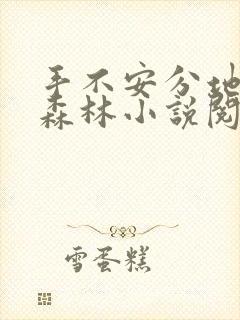 手不安分地
森林小説閱
雪蛋糕